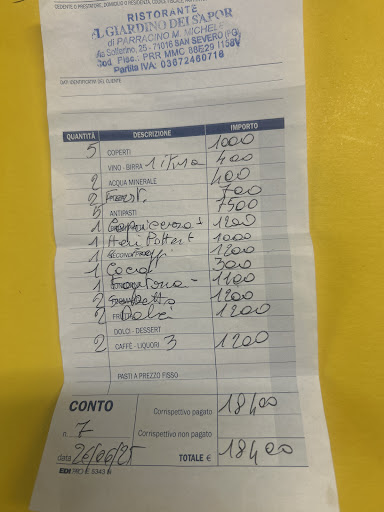 CEDENTE O PRESTATORE, DOMICILIO O RESIDENZA, CODICE FISCALE,
RISTORANTE
IL GIARDINO DEI SAPOR
di PARRACINO M. MICHELE
Via Solferino, 25 - 71016 SAN SEVERO (FG)
Cod. Fisc.: PRR MMC 88E29 I158V
Partita IVA: 03672460716
DATI IDENTIFICATIVI DEL CLIENTE
QUANTITÀ DESCRIZIONE IMPORTO
5 COPERTI 1000
VINO - BIRRA 1 400
2 ACQUA MINERALE 400
2 700
5 ANTIPASTI 7500
1 1200
1 1000
1 1200
1 Coca 300
1 1100
2 1200
2 Dolci 1200
DOLCI - DESSERT
2 CAFFÈ - LIQUORI 3 1200
PASTI A PREZZO FISSO
CONTO Corrispettivo pagato 18400
n. 7 Corrispettivo non pagato
data 26/06/25 TOTALE € 18400